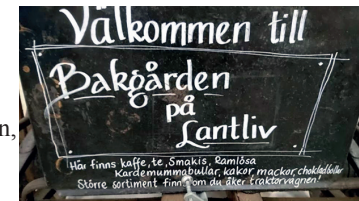 Välkommen till
Bakgården
på
Lantliv
Här finns kaffe, te, Smakis, Ramlösa
Kardemummabullar, kakor, mackor, chokladbollar
Större sortiment finns om du åker traktorvagnen!
n,